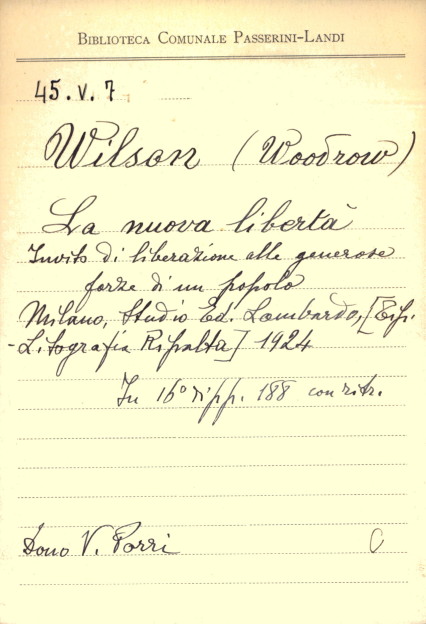 BIBLIOTECA COMUNALE PASSERINI-LANDI
45.V.7
Wilson (Woodrow)
La nuova libertà
Invito di liberazione alle generose
forze di un popolo
Milano, Studio Ed. Lombardo, [Tip.
-Litografia Ripalta] 1924
In 16° di pp. 188 con ritr.
Dono V. Porri C